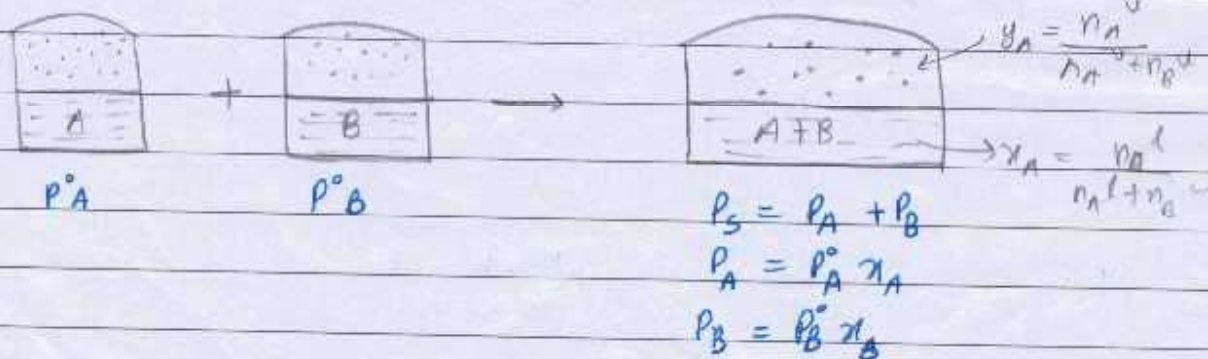 y_A = n_A^v / n_A^v + n_B^v
A + B → A + B
x_A = n_A^l / n_A^l + n_B
P°A P°B
P_S = P_A + P_B
P_A = P°_A x_A
P_B = P°_B x_B